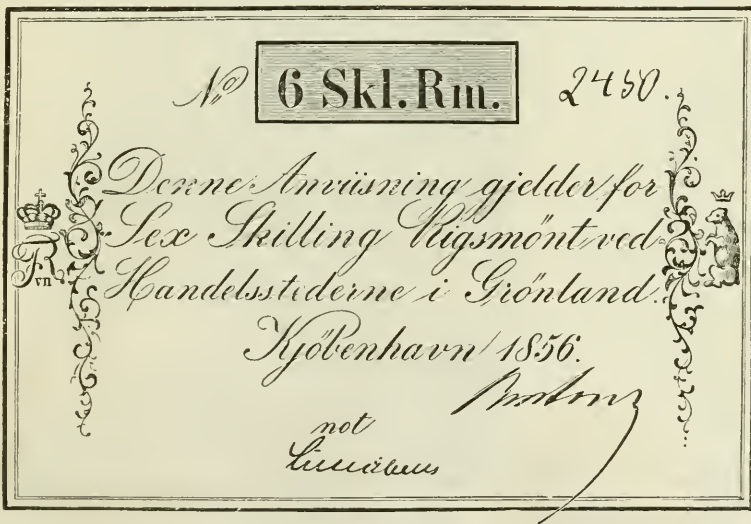 No 6 Skl. Rm. 2450.
Denne Anviisning gjelder for
Sex Skilling Rigsmönt ved
Handelsstederne i Grönland.
Kjöbenhavn 1856.
FR
VII
not